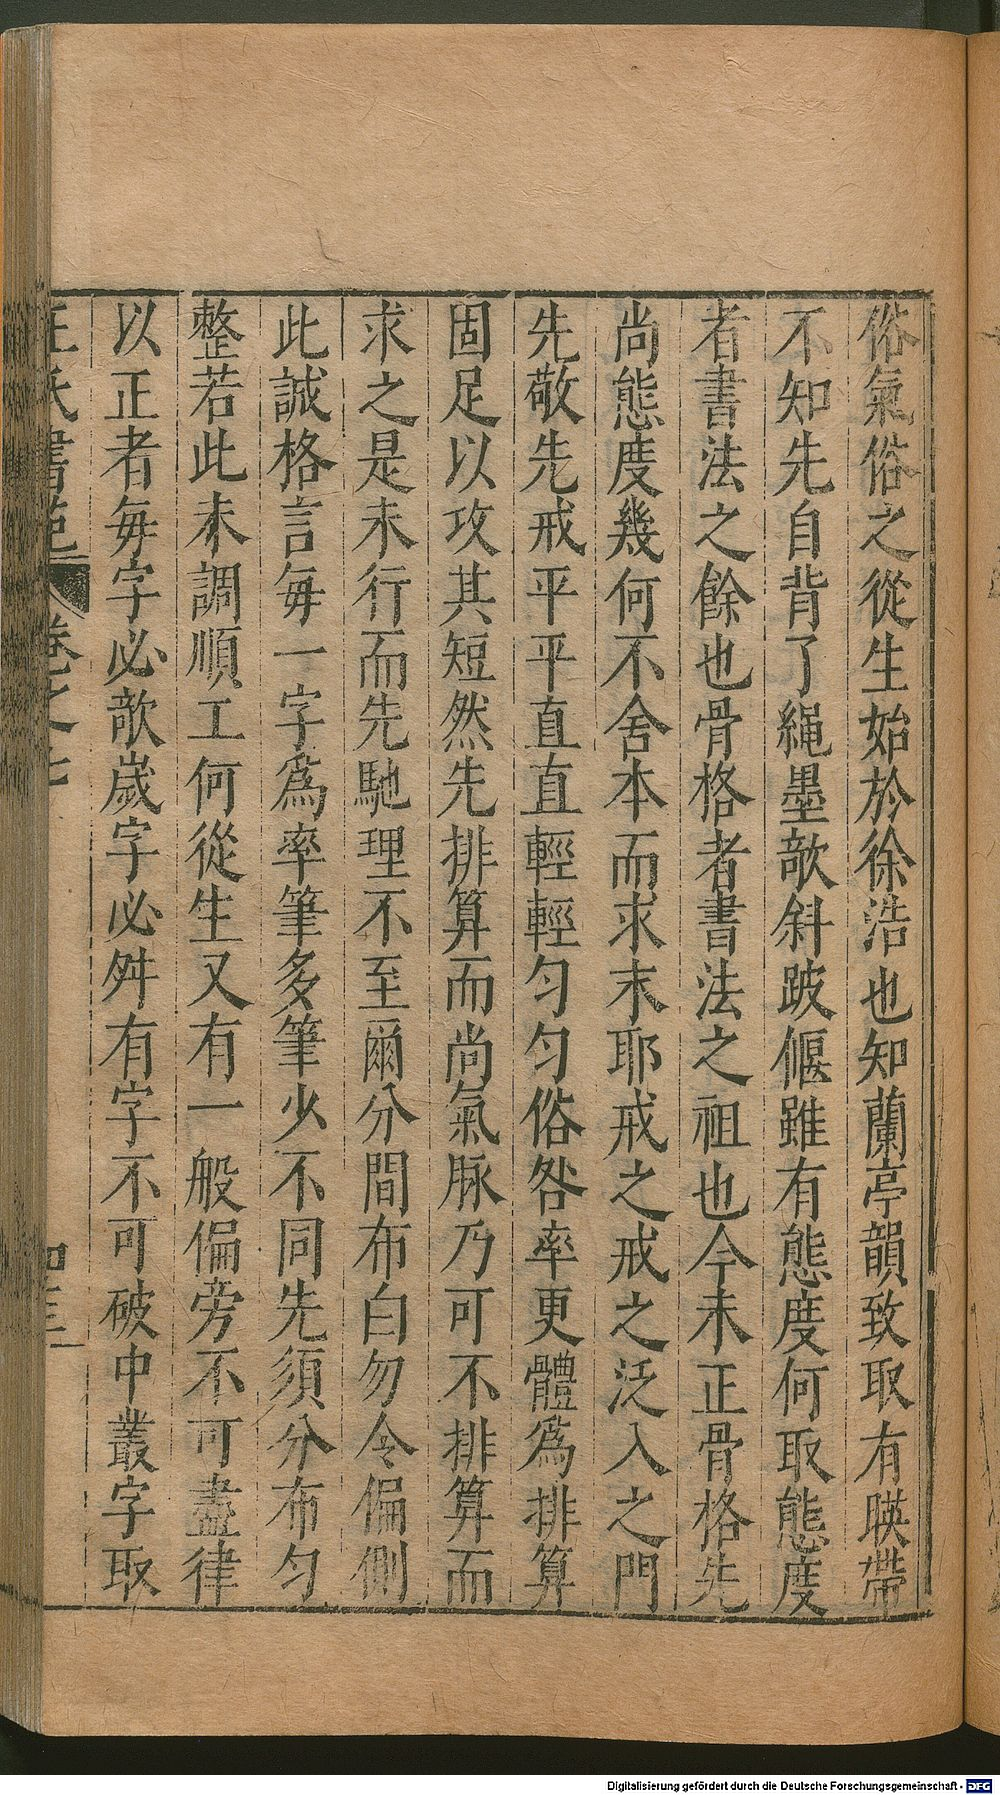 俗氣俗之從生始於徐浩也知蘭亭韻致取有暎帶
不知先自背了繩墨敧斜跛偃雖有態度何取態度
者書法之餘也骨格者書法之祖也今未正骨格先
尚態度幾何不舍本而求末耶戒之戒之泛入之門
先敬先戒平平直直輕輕匀匀俗咎率更體爲排算
固足以攻其短然先排算而尚氣脉乃可不排算而
求之是未行而先馳理不至爾分間布白勿令偏側
此誠格言毎一字爲率筆多筆少不同先須分布匀
整若此未調順工何從生又有一般偏旁不可盡律
以正者毎字必敧歲字必舛有字不可破中叢字取
汪氏書範 卷之七
Digitalisierung gefördert durch die Deutsche Forschungsgemeinschaft - DFG